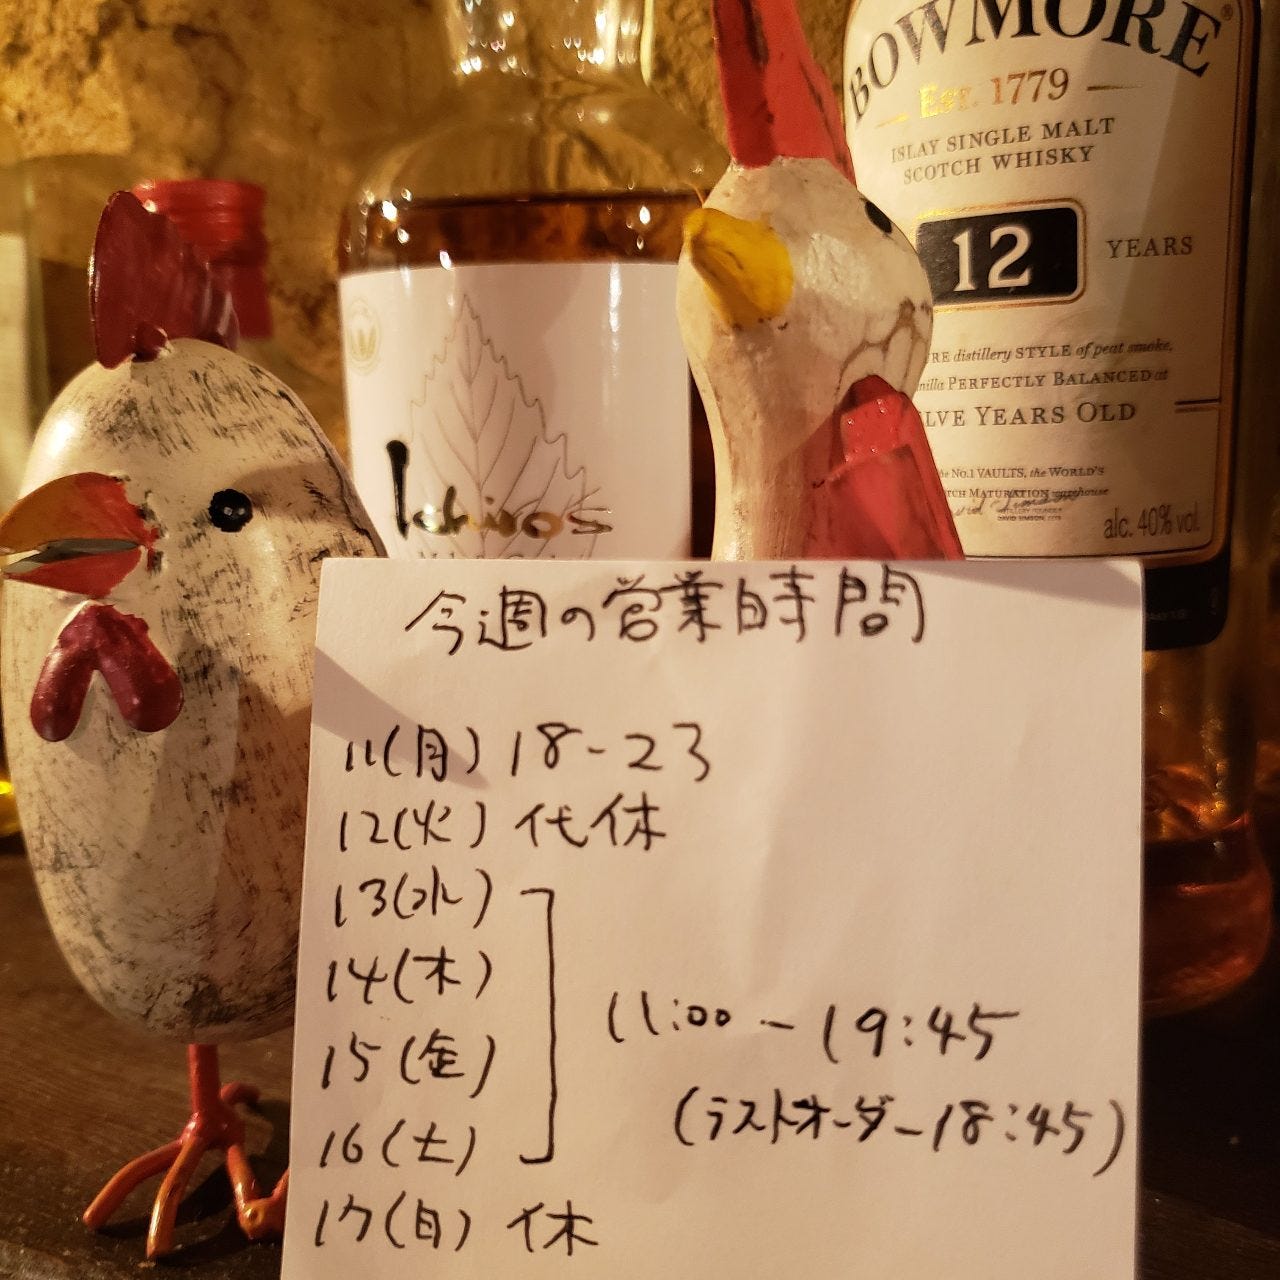 BOWMORE®
Est. 1779
ISLAY SINGLE MALT
SCOTCH WHISKY
12 YEARS
distillery STYLE of peat smoke,
PERFECTLY BALANCED at
YEARS OLD
No.1 VAULTS, the WORLD'S
MATURATION warehouse
DAVID SIMSON
alc. 40% vol.
Ichiro's
今週の営業時間
11(月) 18-23
12(火) 代休
13(水)
14(木)
15(金)
16(土)
11:00-19:45
(ラストオーダー18:45)
17(日) 休